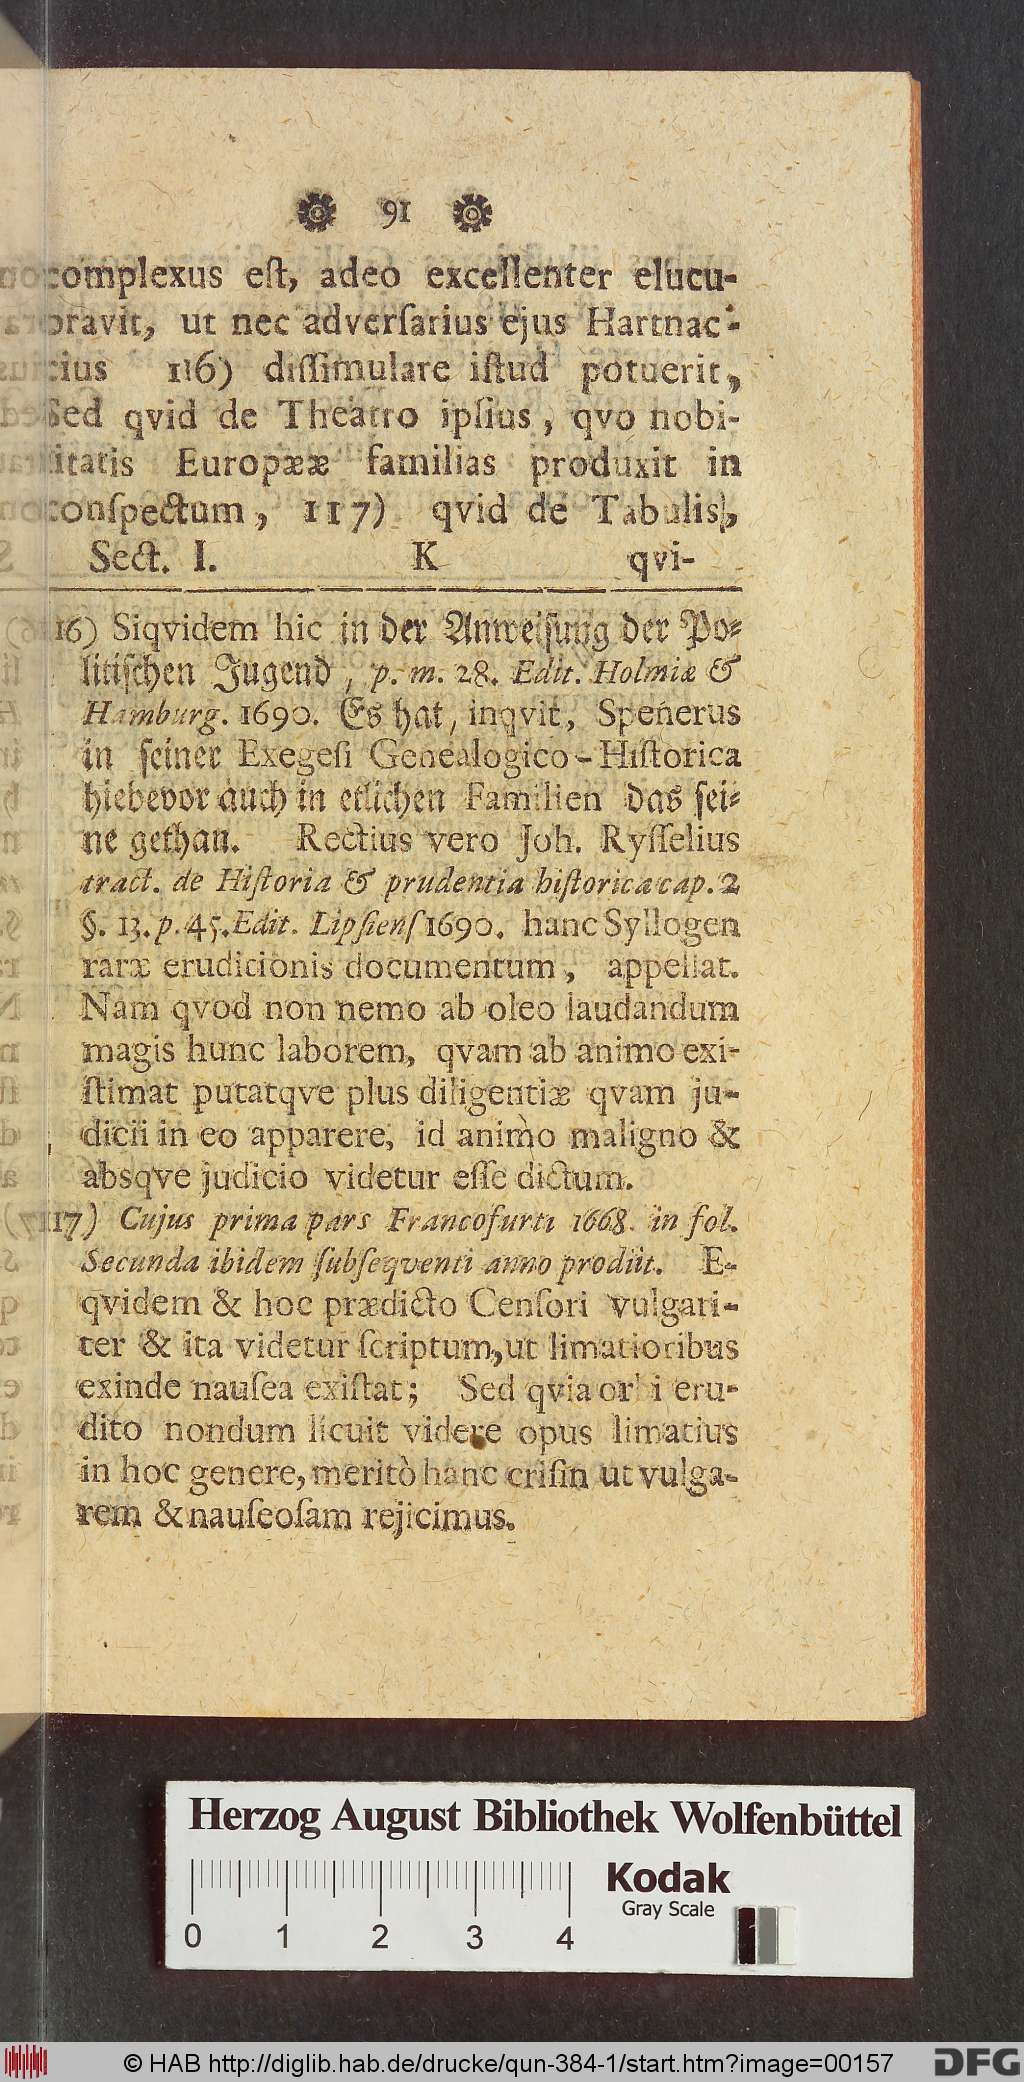 91
complexus eſt, adeo excellenter elucu-
bravit, ut nec adverſarius ejus Hartnac-
cius 116) diſſimulare iſtud potuerit,
Sed qvid de Theatro ipſius, qvo nobi-
litatis Europææ familias produxit in
conſpectum, 117) qvid de Tabulis,
Sect. I. K qvi-
116) Siqvidem hic in der Anweiſung der Po-
litiſchen Jugend, p. m. 28. Edit. Holmiæ &
Hamburg. 1690. Es hat, inqvit, Spenerus
in ſeiner Exegeſi Genealogico-Hiſtorica
hiebevor auch in etlichen Familien das ſei-
ne gethan. Rectius vero Joh. Ryſſelius
tract. de Hiſtoria & prudentia hiſtorica cap. 2
§. 13. p. 45. Edit. Lipſienſ 1690. hanc Syllogen
raræ eruditionis documentum, appellat.
Nam qvod non nemo ab oleo laudandum
magis hunc laborem, qvam ab animo exi-
ſtimat putatqve plus diligentiæ qvam ju-
dicii in eo apparere, id animò maligno &
absqve judicio videtur eſſe dictum.
117) Cujus prima pars Francofurti 1668. in fol.
Secunda ibidem ſubſeqventi anno prodiit. E-
qvidem & hoc prædicto Cenſori vulgari-
ter & ita videtur ſcriptum, ut limatioribus
exinde nauſea exiſtat; Sed qvia orbi eru-
dito nondum licuit videre opus limatius
in hoc genere, meritò hanc criſin ut vulga-
rem & nauſeoſam rejicimus.
Herzog August Bibliothek Wolfenbüttel
Kodak
Gray Scale
0 1 2 3 4
© HAB http://diglib.hab.de/drucke/qun-384-1/start.htm?image=00157
DFG